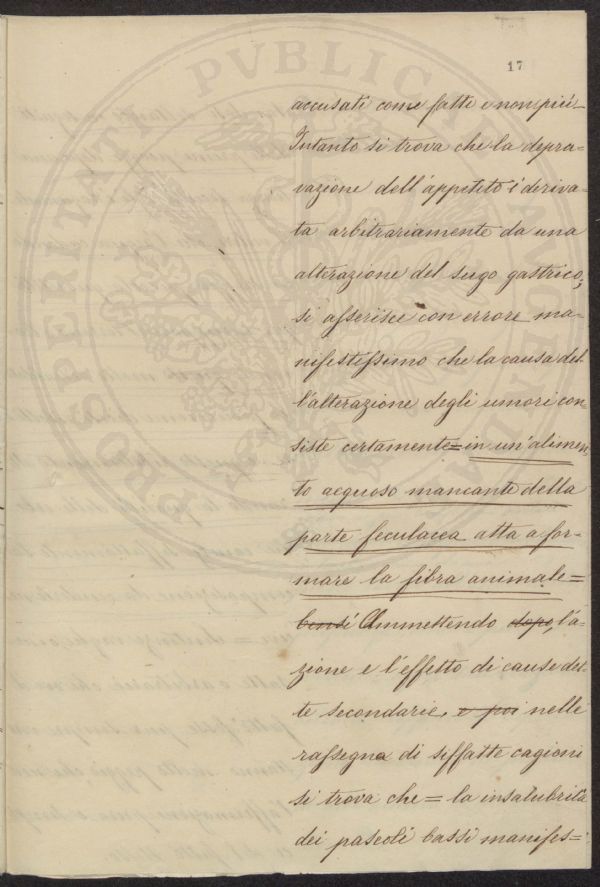 PROSPERITATI PVBLICAE AVGENDAE
17
accusati come fatti e non più –
Intanto si trova che la depra-
vazione dell'appetito è deriva-
ta arbitrariamente da una
alterazione del sugo gastrico;
si asserisce con errore ma-
nifestissimo che la causa del-
l'alterazione degli umori con-
siste certamente = in un'alimen-
to acquoso mancante della
parte feculacea atta a for-
mare la fibra animale =
bensì Ammettendo dopo, l'a-
zione e l'effetto di cause det-
te secondarie, e poi nelle
rassegna di siffatte cagioni
si trova che = la insalubrità
dei pascoli bassi manifes=